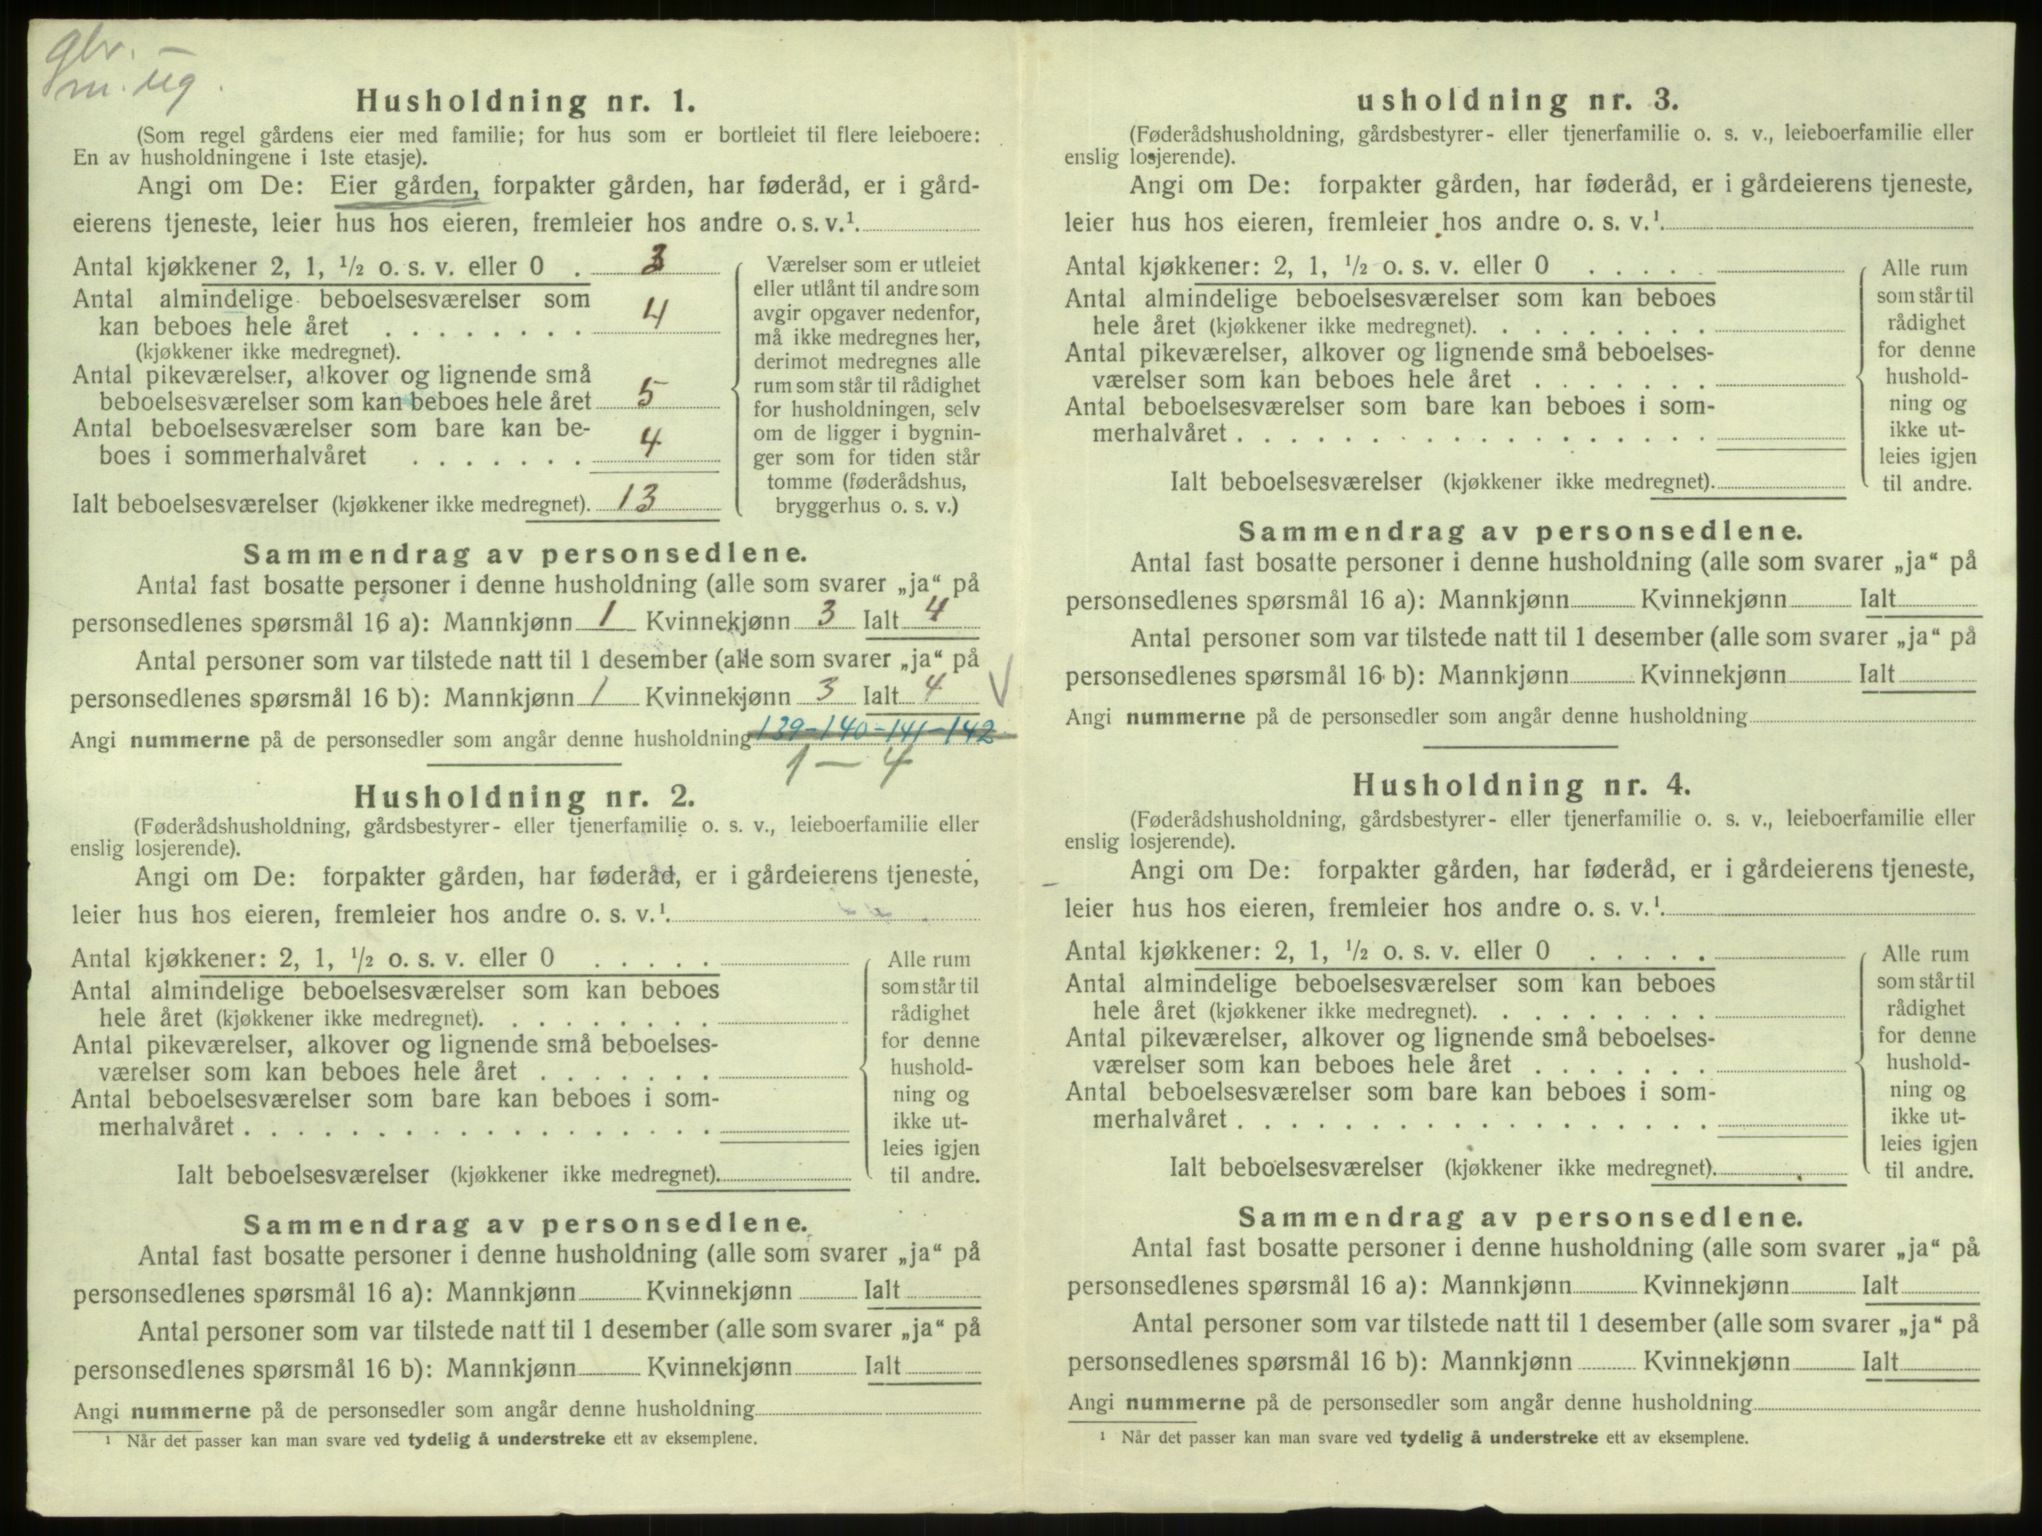 gbr. —
m. ug.
Husholdning nr. 1.
(Som regel gårdens eier med familie; for hus som er bortleiet til flere leieboere:
En av husholdningene i 1ste etasje).
Angi om De: Eier gården, forpakter gården, har føderåd, er i gård-
eierens tjeneste, leier hus hos eieren, fremleier hos andre o. s. v.¹.
Antal kjøkkener 2, 1, ½ o. s. v. eller 0 . 3
Antal almindelige beboelsesværelser som
kan beboes hele året . . . . . . . . 4
(kjøkkener ikke medregnet).
Antal pikeværelser, alkover og lignende små
beboelsesværelser som kan beboes hele året 5
Antal beboelsesværelser som bare kan be-
boes i sommerhalvåret . . . . . . . 4
Ialt beboelsesværelser (kjøkkener ikke medregnet). 13
Værelser som er utleiet
eller utlånt til andre som
avgir opgaver nedenfor,
må ikke medregnes her,
derimot medregnes alle
rum som står til rådighet
for husholdningen, selv
om de ligger i bygnin-
ger som for tiden står
tomme (føderådshus,
bryggerhus o. s. v.)
Sammendrag av personsedlene.
Antal fast bosatte personer i denne husholdning (alle som svarer „ja“ på
personsedlenes spørsmål 16 a): Mannkjønn 1 Kvinnekjønn 3 Ialt 4
Antal personer som var tilstede natt til 1 desember (alle som svarer „ja“ på
personsedlenes spørsmål 16 b): Mannkjønn 1 Kvinnekjønn 3 Ialt 4 √
Angi nummerne på de personsedler som angår denne husholdning 139-140-141-142
1 — 4
Husholdning nr. 2.
(Føderådshusholdning, gårdsbestyrer- eller tjenerfamilie o. s. v., leieboerfamilie eller
enslig losjerende).
Angi om De: forpakter gården, har føderåd, er i gårdeierens tjeneste,
leier hus hos eieren, fremleier hos andre o. s. v.¹.
Antal kjøkkener: 2, 1, ½ o. s. v. eller 0 . . . . .
Antal almindelige beboelsesværelser som kan beboes
hele året (kjøkkener ikke medregnet). . . . . . . . .
Antal pikeværelser, alkover og lignende små beboelses-
værelser som kan beboes hele året . . . . . . .
Antal beboelsesværelser som bare kan beboes i som-
merhalvåret . . . . . . . . . . . . . . . . . .
Ialt beboelsesværelser (kjøkkener ikke medregnet).
Alle rum
som står til
rådighet
for denne
hushold-
ning og
ikke ut-
leies igjen
til andre.
Sammendrag av personsedlene.
Antal fast bosatte personer i denne husholdning (alle som svarer „ja“ på
personsedlenes spørsmål 16 a): Mannkjønn Kvinnekjønn Ialt
Antal personer som var tilstede natt til 1 desember (alle som svarer „ja“ på
personsedlenes spørsmål 16 b): Mannkjønn Kvinnekjønn Ialt
Angi nummerne på de personsedler som angår denne husholdning
¹ Når det passer kan man svare ved tydelig å understreke ett av eksemplene.
usholdning nr. 3.
(Føderådshusholdning, gårdsbestyrer- eller tjenerfamilie o. s. v., leieboerfamilie eller
enslig losjerende).
Angi om De: forpakter gården, har føderåd, er i gårdeierens tjeneste,
leier hus hos eieren, fremleier hos andre o. s. v.¹.
Antal kjøkkener: 2, 1, ½ o. s. v. eller 0 . . . . .
Antal almindelige beboelsesværelser som kan beboes
hele året (kjøkkener ikke medregnet). . . . . . . . .
Antal pikeværelser, alkover og lignende små beboelses-
værelser som kan beboes hele året . . . . . . .
Antal beboelsesværelser som bare kan beboes i som-
merhalvåret . . . . . . . . . . . . . . . . . .
Ialt beboelsesværelser (kjøkkener ikke medregnet).
Alle rum
som står til
rådighet
for denne
hushold-
ning og
ikke ut-
leies igjen
til andre.
Sammendrag av personsedlene.
Antal fast bosatte personer i denne husholdning (alle som svarer „ja“ på
personsedlenes spørsmål 16 a): Mannkjønn Kvinnekjønn Ialt
Antal personer som var tilstede natt til 1 desember (alle som svarer „ja“ på
personsedlenes spørsmål 16 b): Mannkjønn Kvinnekjønn Ialt
Angi nummerne på de personsedler som angår denne husholdning
Husholdning nr. 4.
(Føderådshusholdning, gårdsbestyrer- eller tjenerfamilie o. s. v., leieboerfamilie eller
enslig losjerende).
Angi om De: forpakter gården, har føderåd, er i gårdeierens tjeneste,
leier hus hos eieren, fremleier hos andre o. s. v.¹.
Antal kjøkkener: 2, 1, ½ o. s. v. eller 0 . . . . .
Antal almindelige beboelsesværelser som kan beboes
hele året (kjøkkener ikke medregnet). . . . . . . . .
Antal pikeværelser, alkover og lignende små beboelses-
værelser som kan beboes hele året . . . . . . .
Antal beboelsesværelser som bare kan beboes i som-
merhalvåret . . . . . . . . . . . . . . . . . .
Ialt beboelsesværelser (kjøkkener ikke medregnet).
Alle rum
som står til
rådighet
for denne
hushold-
ning og
ikke ut-
leies igjen
til andre.
Sammendrag av personsedlene.
Antal fast bosatte personer i denne husholdning (alle som svarer „ja“ på
personsedlenes spørsmål 16 a): Mannkjønn Kvinnekjønn Ialt
Antal personer som var tilstede natt til 1 desember (alle som svarer „ja“ på
personsedlenes spørsmål 16 b): Mannkjønn Kvinnekjønn Ialt
Angi nummerne på de personsedler som angår denne husholdning
¹ Når det passer kan man svare ved tydelig å understreke ett av eksemplene.